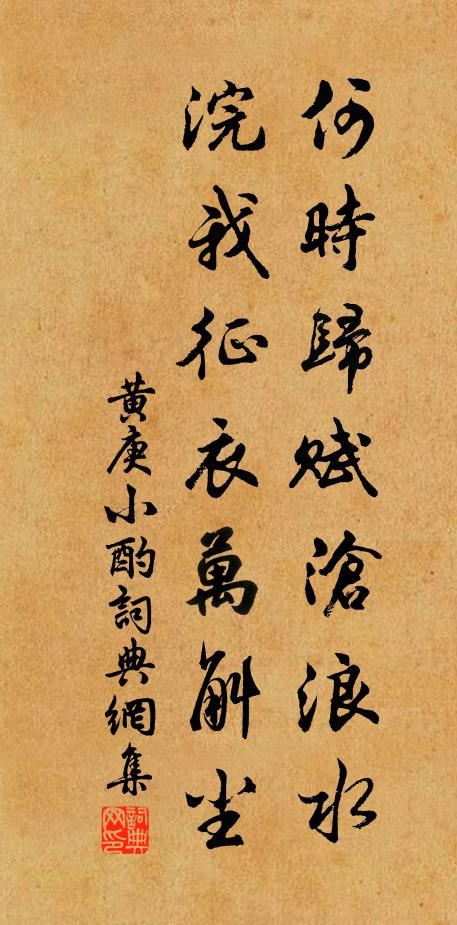 何時歸賦滄浪水
浣我征衣萬斛尘
黃庚小酌詞典網集
詞典网印